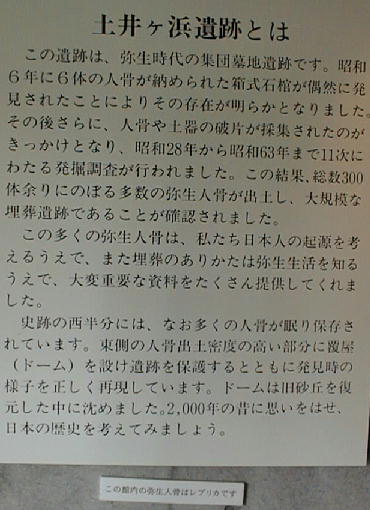 土井ヶ浜遺跡とは
この遺跡は、弥生時代の集団墓地遺跡です。昭和
6年に6体の人骨が納められた箱式石棺が偶然に発
見されたことによりその存在が明らかとなりました。
その後さらに、人骨や土器の破片が採集されたのが
きっかけとなり、昭和28年から昭和63年まで11次に
わたる発掘調査が行われました。この結果、総数300
体余りにのぼる多数の弥生人骨が出土し、大規模な
埋葬遺跡であることが確認されました。
この多くの弥生人骨は、私たち日本人の起源を考
えるうえで、また埋葬のありかたは弥生生活を知る
うえで、大変重要な資料をたくさん提供してくれま
した。
史跡の西半分には、なお多くの人骨が眠り保存さ
れています。東側の人骨出土密度の高い部分に覆屋
（ドーム）を設け遺跡を保護するとともに発見時の
様子を正しく再現しています。ドームは旧砂丘を復
元した中に沈めました。2,000年の昔に思いをはせ、
日本の歴史を考えてみましょう。
この館内の弥生人骨はレプリカです